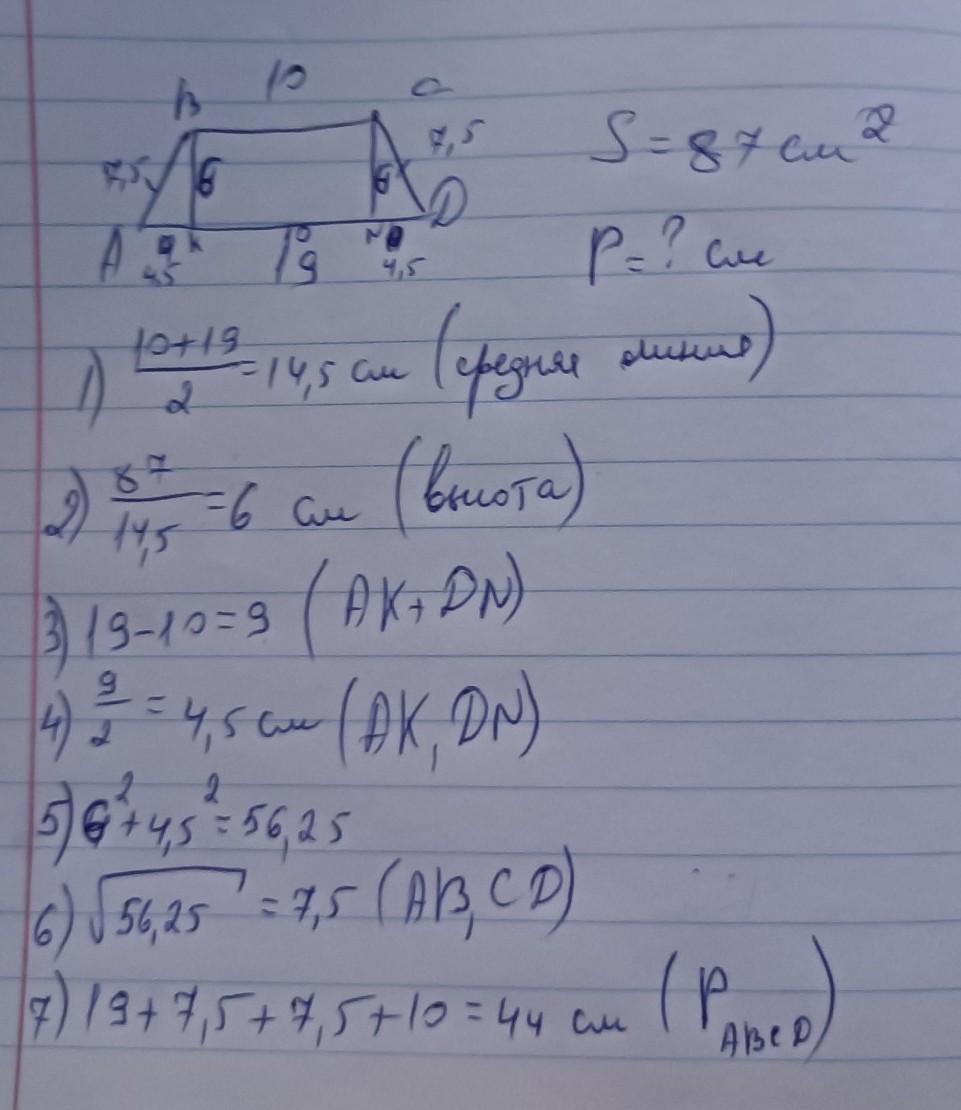 B 10 C
7,5 6 6 7,5
A K 10 N D
4,5 19 4,5
S = 87 см²
P = ? см
1) (10+19)/2 = 14,5 см (средняя линия)
2) 87/14,5 = 6 см (высота)
3) 19-10=9 (AK+DN)
4) 9/2 = 4,5 см (AK, DN)
5) 6²+4,5²=56,25
6) √56,25 = 7,5 (AB, CD)
7) 19+7,5+7,5+10=44 см (P ABCD)